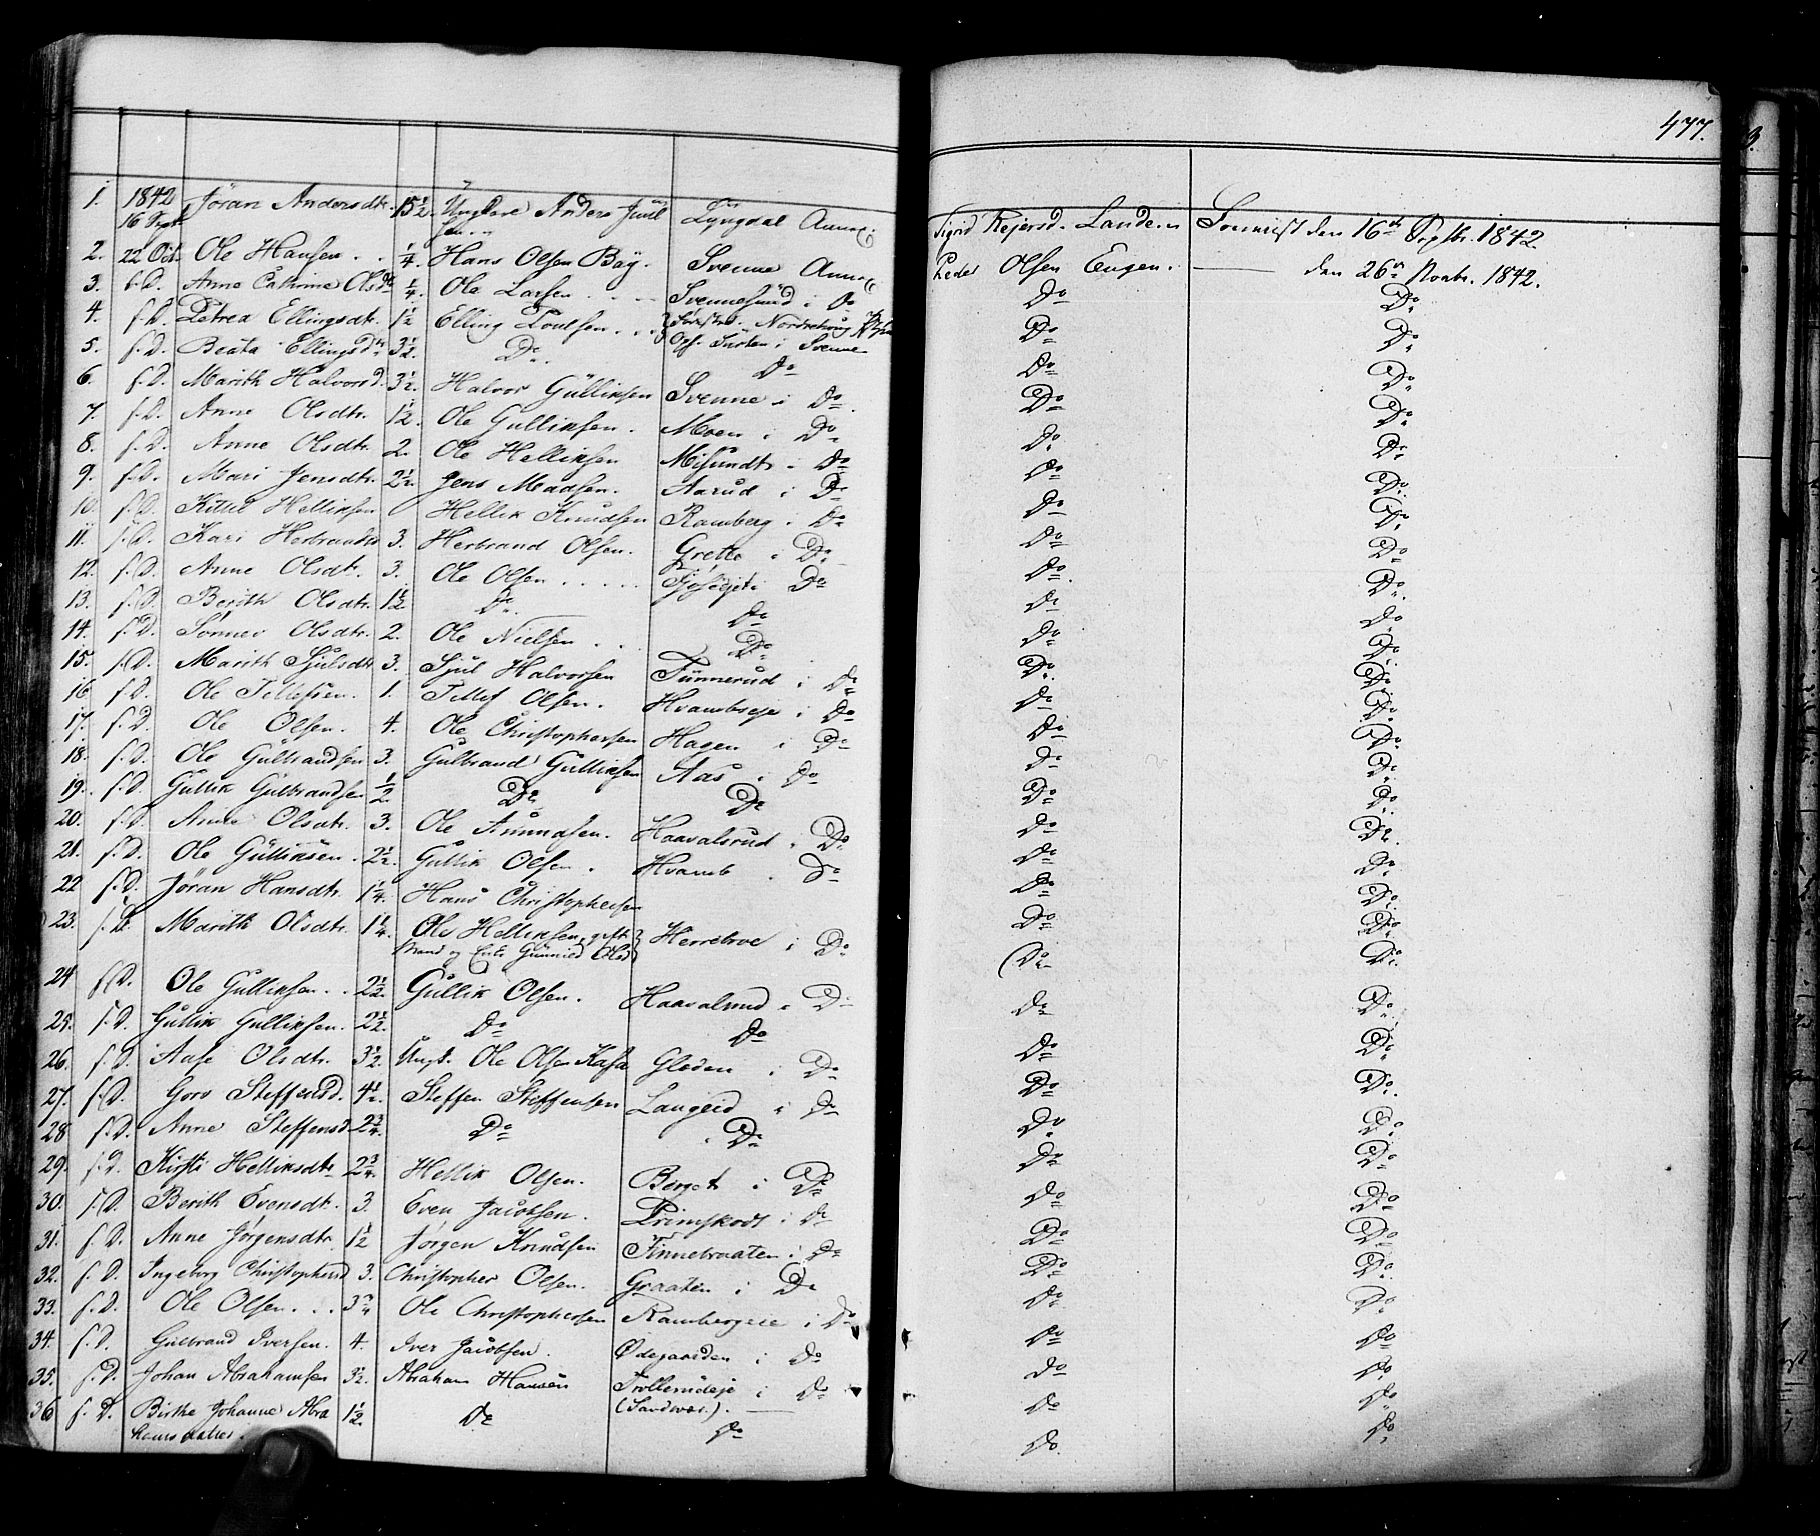 477.
1. 1842 16 Sept Jøran Andersdtr. 15 1/2. Ungkarl Anders Juul Lyngdal Annex. Sigrid Rejersd. Landen Sonnist den 16de Septbr. 1842.
2. 22 Oct. Ole Hansen . . 1/4 Hans Olsen Bay. Svenne Annex Peder Olsen Eugen. — den 26de Novbr. 1842.
3. f. D. Anne Cathrine Olsdtr 1/4. Ole Larsen . . . . Svennesund i Do Do Do
4. f. D. Petrea Ellingsdtr. 1 1/2 Elling Poulsen . . Do Do
5. f. D. Beata Ellingsdtr 3 1/2. Do Do Do Do
6. f. D. Marith Halvorsd. 3 1/2. Halvor Gülliksen Svenne i Do Do Do
7. f. D. Anne Olsdtr. 1 1/2. Ole Gulliksen. Moen i Do Do Do
8. f. D. Anne Olsdtr. 2. Ole Helliksen Misundtr i Do Do Do
9. f. D. Mari Jensdtr. 2 1/2. Jens Madsen. Aarud i Do Do Do
10. f. D. Kittil Helliksen Hellik Knudsen Ramberg i Do Do Do
11. f. D. Kari Herbrandsd 3. Herbrand Olsen. Grette i Do Do Do
12. f. D. Anne Olsdtr. 3. Ole Olsen . . . . . Do Do Do
13. f. D. Berith Olsdtr. 1 1/2 Do Do Do Do
14. f. D. Sønnev Olsdtr. 2. Ole Nielsen . . Do Do Do
15. f. D. Marith Sjulsdtr 3. Sjul Halvorsen Tunnerud i Do Do Do
16 f. D. Ole Tellefsen. 1. Tellef Olsen. Hvambseje i Do Do Do
17. f. D. Ole Olsen. 4. Ole Christophersen Hagen i Do Do Do
18. f. D. Ole Gulbrandsen 3. Gulbrand Gulliksen Aas i Do Do Do
19. f. D. Gullik Gulbrandsen 1/2. Do Do Do Do
20. f. D. Anne Olsdtr. 3. Ole Amundsen. Haavalsrud i Do Do Do
21. f. D. Ole Gulliksen. 2 1/2. Gullik Olsen. Hvamb i Do Do Do
22 f. D. Jøran Hansdtr. 1 1/4 Hans Christophersen Do Do
23. f. D. Marith Olsdtr. 1 1/4. Ole Helliksen, gift Herrebroe i Do Do Do
Mand og Enke Gunnild Olsd
24 f. D. Ole Gulliksen . . 2 1/2. Gullik Olsen. Haavalsrud i Do Do Do
25. f. D. Gullik Gulliksen. 2 1/2. Do Do Do Do
26. f. D. Aase Olsdtr. 3 1/2. Ungk. Ole Olsen Kasa Gloden i Do Do Do
27. f. D. Goro Steffensd. 4 1/2. Steffen Steffensen Langeid i Do Do Do
28 f. D. Anne Steffensd. 2 3/4. Do Do Do Do
29. f. D. Kirsti Helliksdtr 2 3/4. Hellik Olsen. Berget i Do Do Do
30. f. D. Berith Evensdtr. 3. Even Jacobsen. Do Do Do
31. f. D. Anne Jørgensdtr. 1 1/2 Jørgen Knudsen Finnebraaten i Do Do Do
32. f. D. Ingeborg Christophersd 3. Christopher Olsen. Graaten i Do Do Do
33. f. D. Ole Olsen . . . 3/4 Ole Christophersen Rambergeie i Do Do Do
34. f. D. Gulbrand Iversen. 4. Iver Jacobsen. Ødegaarden i Do Do Do
35. f. D. Johan Abrahamsen 3 1/2. Abraham Hansen Trollerudeje i Do Do Do
(Sandsvær).
36 f. D. Birthe Johanne Abra 1 1/2. Do Do Do Do
hamsdatter.